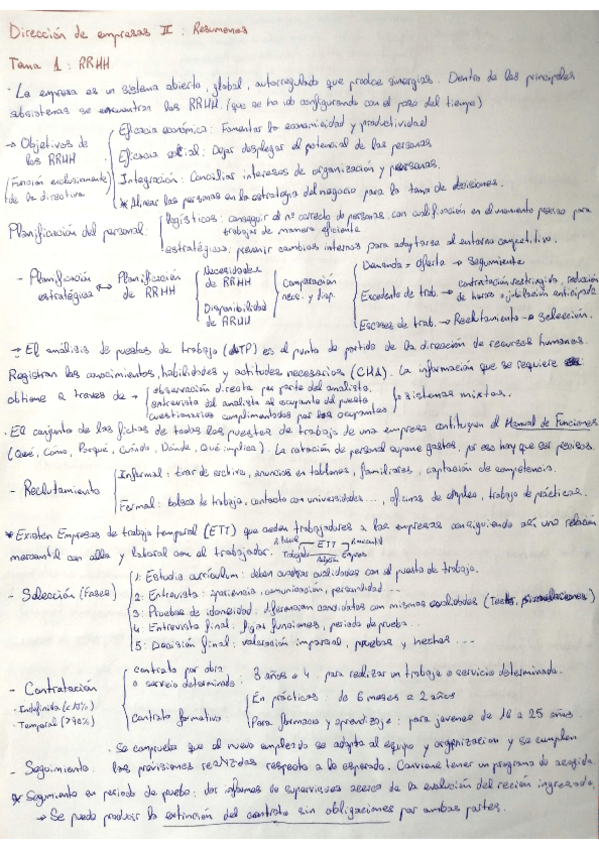 Dirección de empresas II : Resumenes
Tema 1 : RRHH
· La empresa es un sistema abierto, global, autorregulado que produce sinergias. Dentro de los principales
subsistemas se encuentran los RRHH. (que se ha ido configurando con el paso del tiempo)
→ Objetivos de los RRHH (Función exclusivamente de la directiva)
Eficacia económica: Fomentar la economicidad y productividad
Eficacia social: Dejar desplegar el potencial de las personas
Integración: Conciliar intereses de organización y personas.
* Alinear las personas en la estrategia del negocio para la toma de decisiones.
Planificación del personal:
logísticos: conseguir el nº correcto de personas, con cualificación en el momento preciso para
trabajar de manera eficiente
estratégicos: prevenir cambios internos para adaptarse al entorno competitivo.
- Planificación estratégica ↔ Planificación de RRHH
Necesidades de RRHH
Disponibilidad de RRHH
comparación neces. y disp.
Demanda = Oferta → Seguimiento
Excedente de trab. → contratación restringida, reducción
de horas o jubilación anticipada
Escasez de trab. → Reclutamiento → Selección.
→ El análisis de puestos de trabajo (ATP) es el punto de partida de la dirección de recursos humanos.
Registran los conocimientos, habilidades y actitudes necesarios (CHA). La información que se requiere se
obtiene a traves de →
observación directa por parte del analista.
entrevista del analista al ocupante del puesto
cuestionarios cumplimentados por los ocupantes
sistemas mixtos.
· El conjunto de las fichas de todos los puestos de trabajo de una empresa constituyen el Manual de Funciones
(Qué, Cómo, Porqué, Cuándo, Dónde, Qué implica). La rotación de personal supone gastos, por eso hay que ser precisos.
- Reclutamiento
Informal: tirar de archivo, anuncios en tablones, familiares, captación de competencia.
Formal: bolsas de trabajo, contacto con universidades..., oficinas de empleo, trabajo de prácticas.
* Existen Empresas de trabajo temporal (ETT) que ceden trabajadores a las empresas consiguiendo así una relación
mercantil con ella y laboral con el trabajador.
ETT
Mercantil
Trabajador
Empresa
- Selección (Fases)
1: Estudio currículum: deben cuadrar cualidades con el puesto de trabajo.
2: Entrevista: apariencia, comunicación, personalidad...
3: Pruebas de idoneidad, diferencian candidatos con mismas cualidades (Tests, simulaciones)
4: Entrevista final: fijar funciones, periodo de prueba...
5: Decisión final: valoración imparcial, pruebas y hechos...
- Contratación
· Indefinida (<10%)
· Temporal (>90%)
contrato por obra
o servicio determinado: 3 años o 4 para realizar un trabajo o servicio determinado.
Contrato formativo
En prácticas: de 6 meses a 2 años
Para formación y aprendizaje: para jovenes de 16 a 25 años
- Seguimiento:
· Se comprueba que el nuevo empleado se adapta al equipo y organización y se cumplen
las previsiones realizadas respecto a lo esperado. Conviene tener un programa de acogida.
* Seguimiento en periodo de prueba: dos informes de supervisores acerca de la evolución del recién ingresado.
→ Se puede producir la extinción del contrato sin obligaciones por ambas partes.